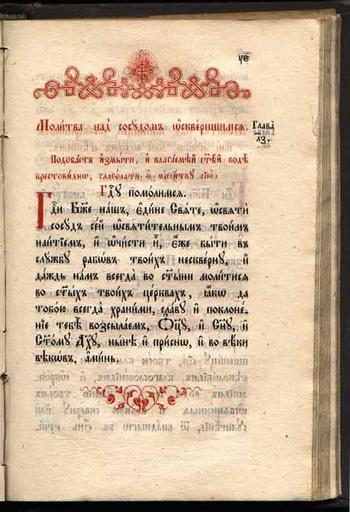 уе
Моли́тва над̾ сосу́дом̾ ѡ҆скве́рншимсѧ.
Глава̀
л҃з.
Подоба́етъ и҆змы́ти, и҆ влага́емѣй ст҃ѣ́й водѣ̀
крⷭ҇тови́днѡ, глаго́лати, и҆ моли́тву сїю̀
Гдⷭ҇у помо́лимсѧ.
Гдⷭ҇и Бж҃е на́шъ, є҆ди́не Ст҃е, ѡ҆свѧтѝ
сосу́дъ се́й ѡ҆свѧти́тельнымъ твои́мъ
наи́тїемъ, и҆ ѡ҆чи́сти и҆̀, є҆́же бы́ти въ
слу́жбу рабѡ́въ твои́хъ нескве́рну, и҆
да́ждь на́мъ всегда̀ во ст҃ы́ни моли́тисѧ
во ст҃ы́хъ твои́хъ це́рквахъ, ꙗ҆́кѡ да
тобо́ю всегда̀ храни́ми, сла́ву и҆ поклоне́-
нїе тебѣ̀ возсыла́емъ, Ѻ҆ц҃у̀, и҆ Сн҃у, и҆
Ст҃о́му Дх҃у, ны́нѣ и҆ при́снѡ, и҆ во вѣ́ки
вѣкѡ́въ, а҆ми́нь.